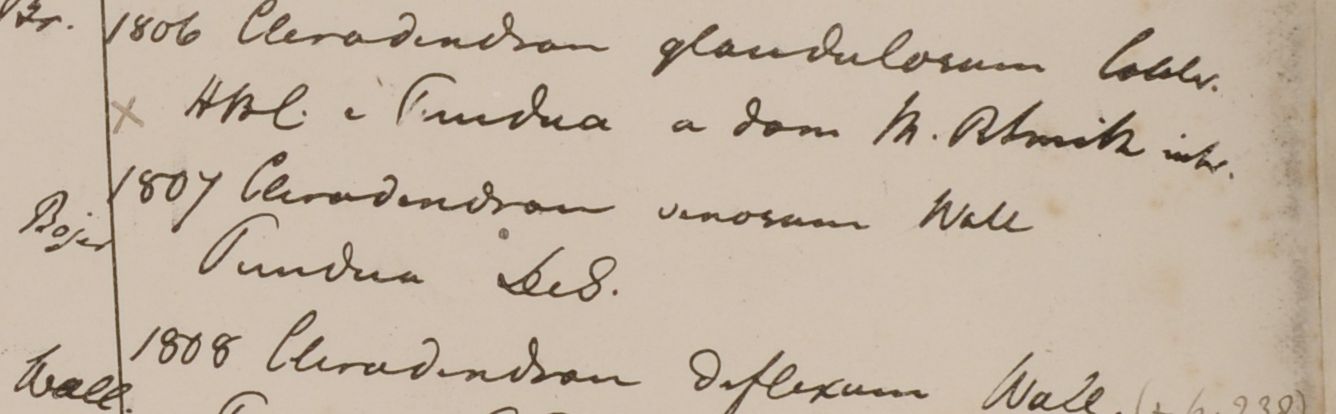 Br. 1806 Clerodendron glandulosum Colebr.
× HBC. e Pundua a dom M. R. Smith intr.
1807 Clerodendron venosum Wall
Bojer
Pundua DeS.
1808 Clerodendron deflexum Wall.
Wall.